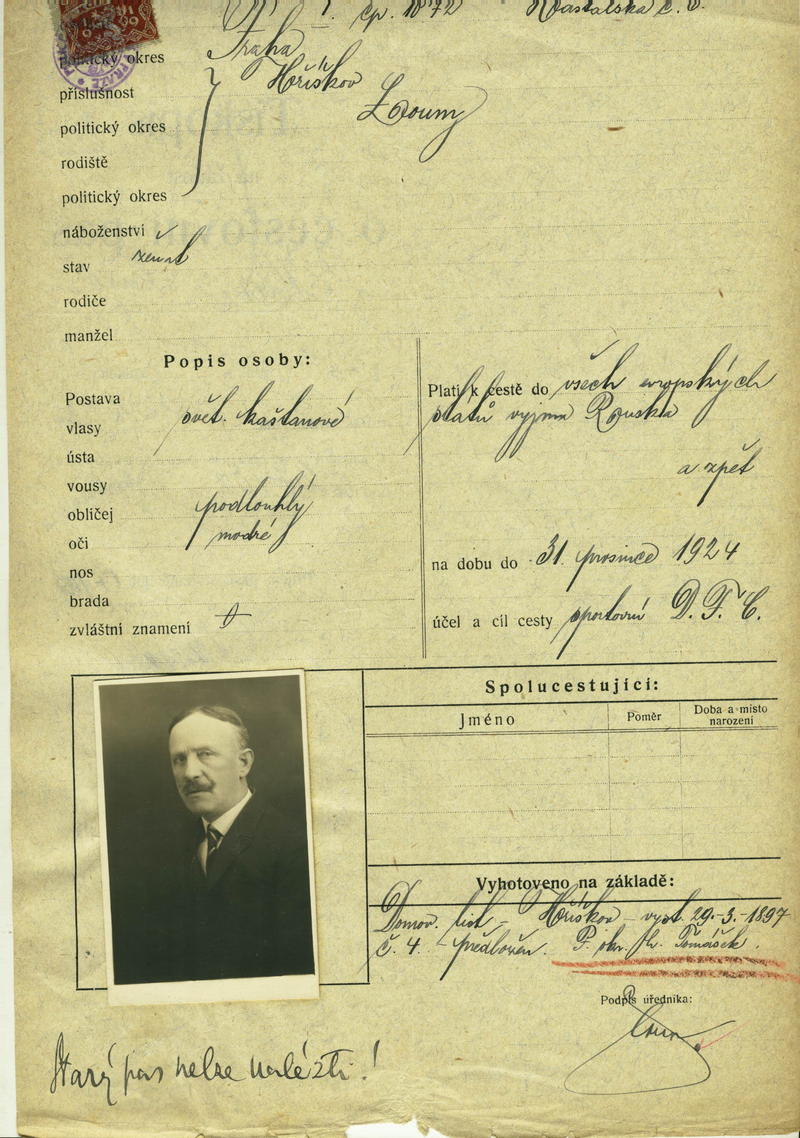 čp. 1872
politický okres Praha
příslušnost Hříškov
politický okres Louny
rodiště
politický okres
náboženství
stav ženat
rodiče
manžel
Popis osoby:
Postava
vlasy svět. kaštanové
ústa
vousy
obličej podlouhlý
oči modré
nos
brada
zvláštní znamení
Platí k cestě do všech evropských
států vyjma Ruska
a zpět
na dobu do 31. prosince 1924
účel a cíl cesty sportovní D. F. C.
Spolucestující:
Jméno Poměr Doba a místo narození
Vyhotoveno na základě:
Domov. list – Hříškov – vyst. 29.-3.-1897
č. 4. – předložen. P. okr. Tomášek.
Podpis úředníka:
Starý pas nelze nalézti!